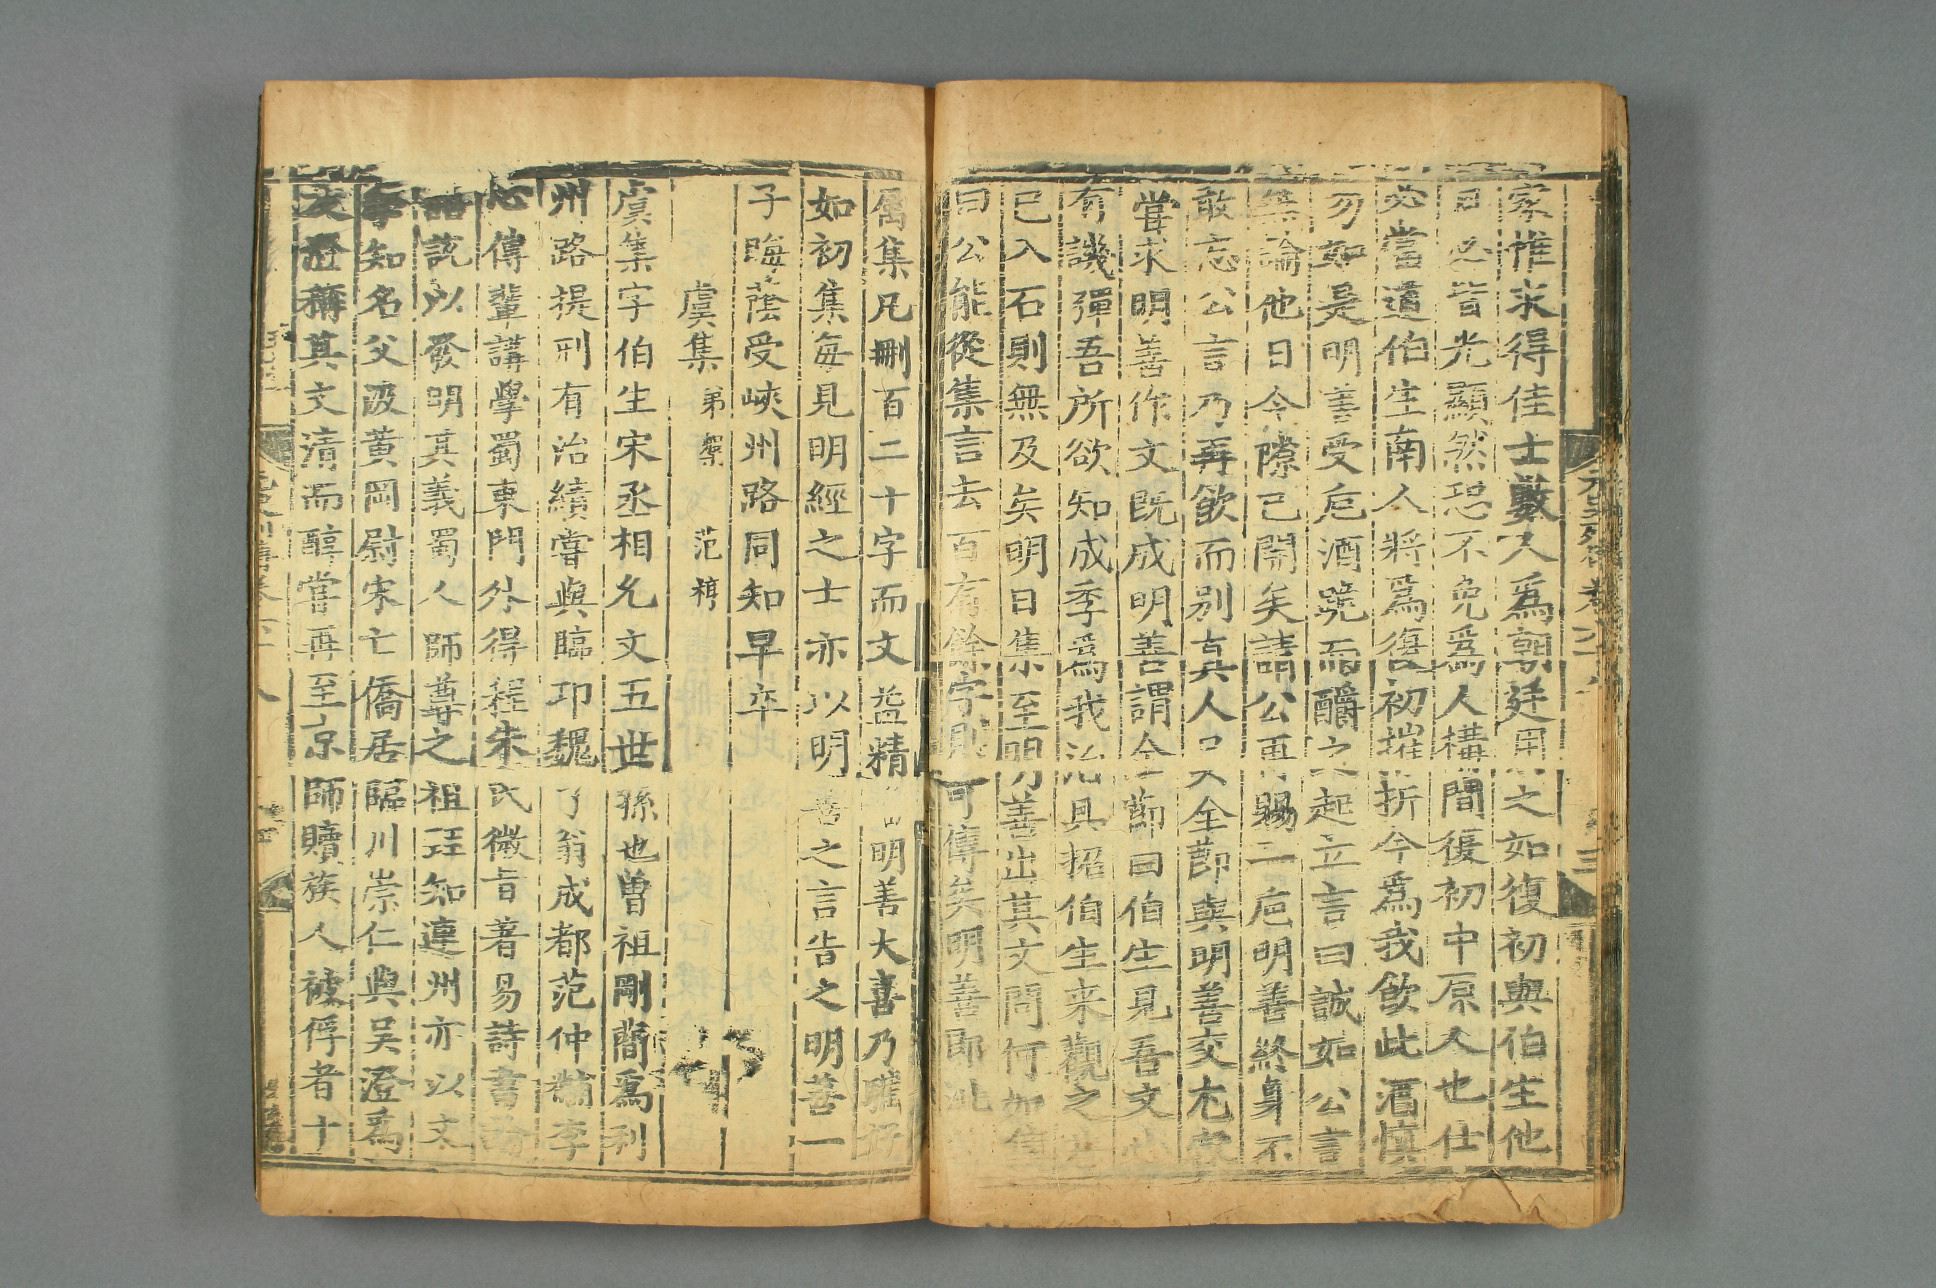 家惟求得佳士數人爲朝廷用之如復初與伯生他
日必皆光顯然恐不免爲人構間復初中原人也仕
必當道伯生南人將爲復初摧折今爲我飲此酒慎
勿如是明善受卮酒跪而釂之起立言曰誠如公言
無論他日今隙已開矣請公再賜一卮明善終身不
敢忘公言乃再飲而别真人吳全節與明善交尤
嘗求明善作文既成明善謂全節曰伯生見吾文
有譏彈吾所欲知成季爲我治具招伯生来觀之
已入石則無及矣明日集至明善出其文問何如
曰公能從集言去百有餘字則可傳矣明善即
屬集凡刪百二十字而文益精 明善大喜乃驩好
如初集每見明經之士亦以明善之言告之明善一
子晦蔭受峽州路同知早卒
虞集 弟槃 范梈
虞集字伯生宋丞相允文五世孫也曾祖剛簡爲利
州路提刑有治績嘗與臨卭魏了翁成都范仲黼李
心傳輩講學蜀東門外得程朱氏微旨著易詩書論
語説以發明其義蜀人師尊之祖珏知連州亦以文
學知名父汲黄岡尉宋亡僑居臨川崇仁與吴澄爲
友澄稱其文清而醇嘗再至京師贖族人被俘者十